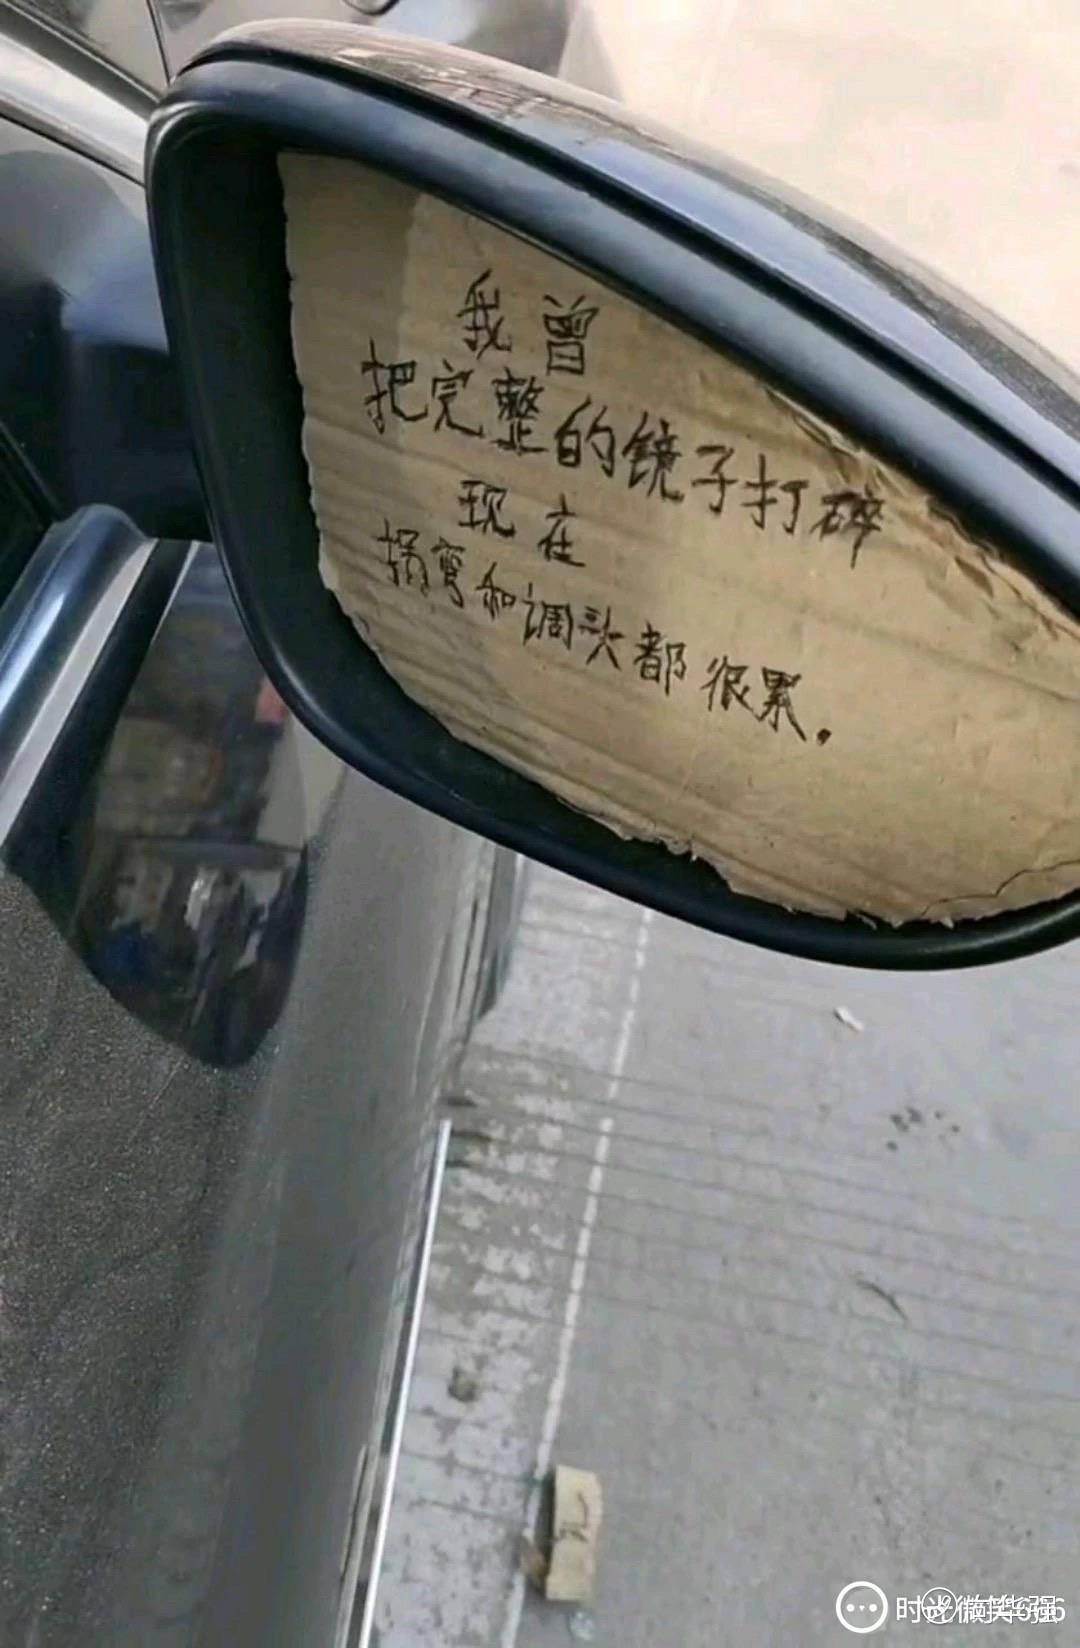 我曾
把完整的镜子打碎
现在
拐弯和调头都很累.